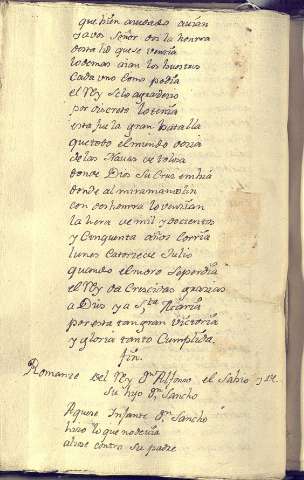 que bien ayudado avian
y a vos Señor den la honrra
desta lid que se vencia
lo demas aian los huestes
Cada uno como podia
el Rey se lo agradecio
por discreto lo tenia
esta fue la gran batalla
que todo el mundo decia
de las Navas de Tolosa
donde Dios su Cruz embia
donde al miramamolin
con deshonrra lo vencian
la hera de mil y docientos
y Cinquenta años corria
lunes Catorze de Julio
quando el moro se perdia
el Rey da Crescidas grazias
a Dios y a S.ta Maria
por esta tan gran Victoria
y gloria tanto Cumplida.
fin.
Romanze del Rey Dn Alfonso el Sabio y de
su hijo Dn Sancho
Aquese Infante Dn Sancho
hizo lo que no devia
alzose contra su padre